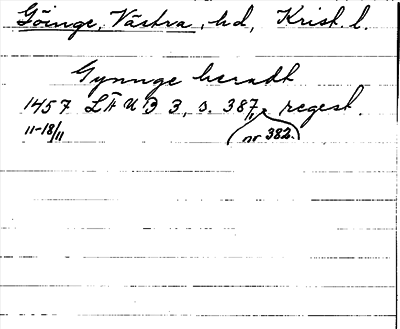 Göinge, Västra, hd, Krist. l.
Gynnge heradt
1457 LÄUB 3, s. 387, regest.
11-18/11 nr 382.